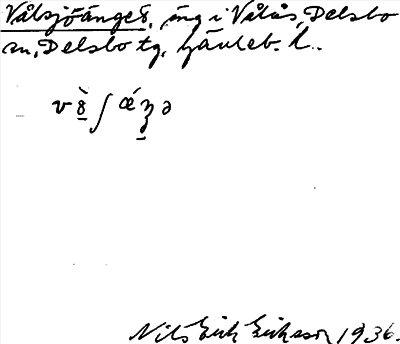 Vålsjöänget, äng i Vålås, Delsbo
sn, Delsbo tg, Gävleb. l.
Nils Erik Eriksson 1936.